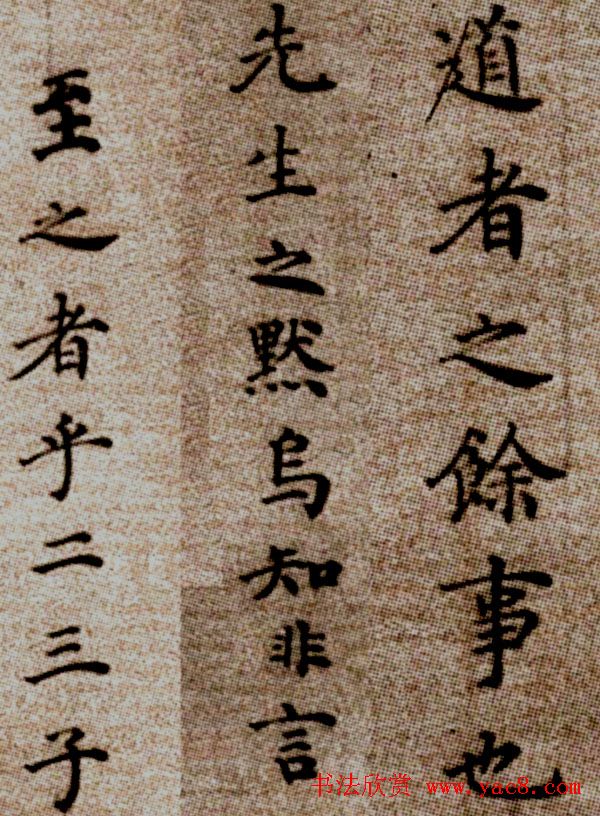 道者之餘事也
先生之默烏知非言
至之者乎二三子
书法欣赏 www.yac8.com